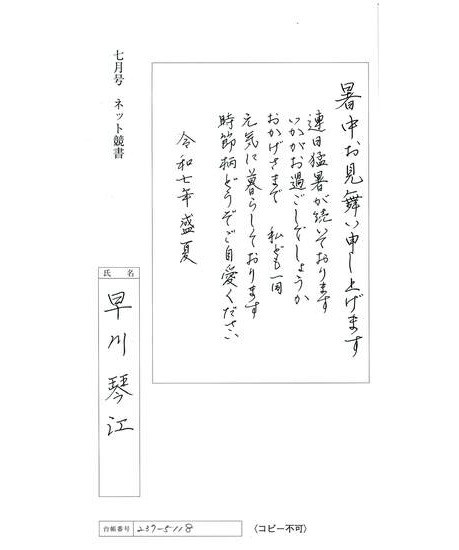 暑中お見舞い申し上げます
連日猛暑が続いております
いかがお過ごしでしょうか
おかげさまで 私ども一同
元気に暮らしております
時節柄どうぞご自愛ください
令和七年盛夏
七月号 ネット競書
氏名
早川琴江
台帳番号 237-5118
(コピー不可)